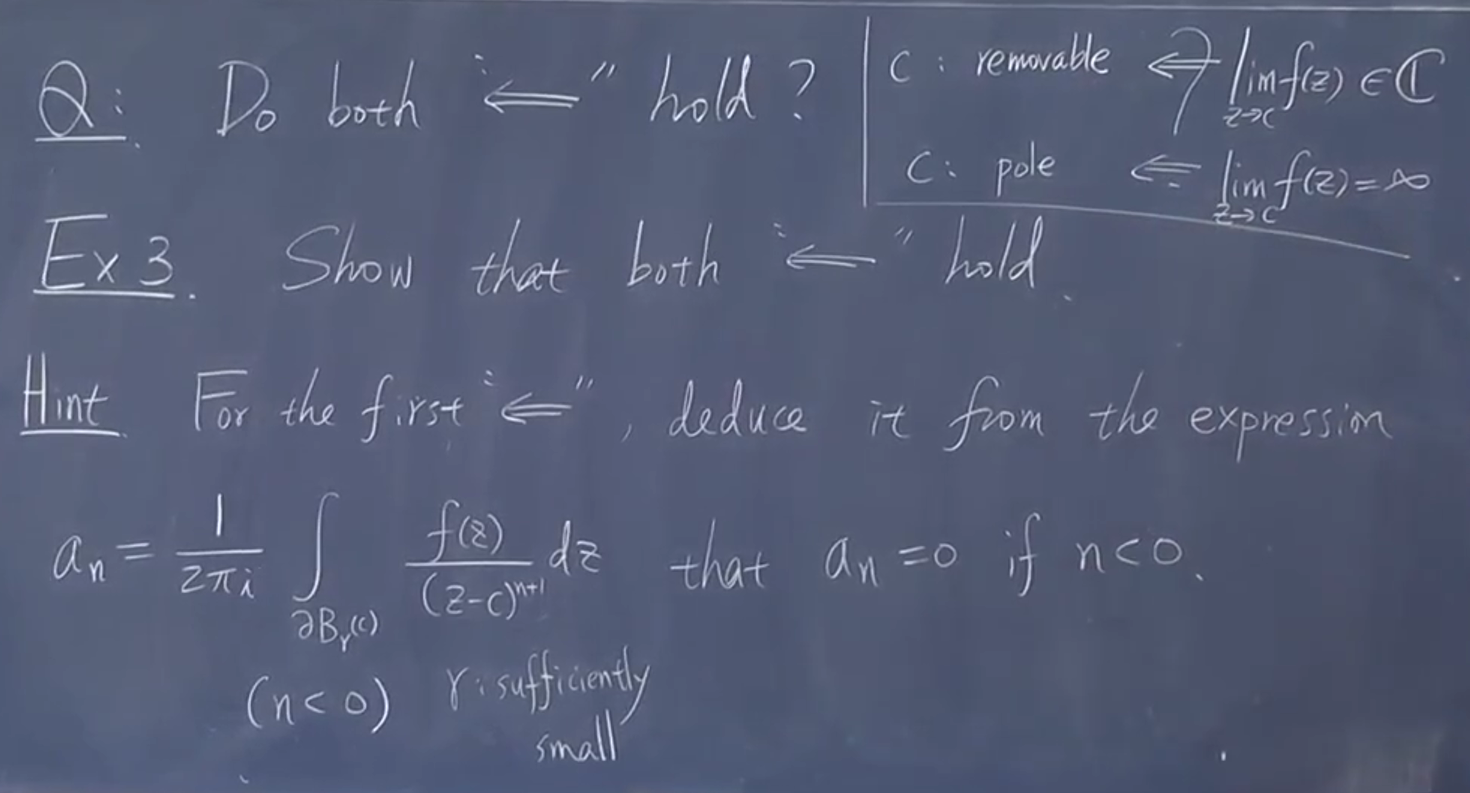 Q: Do both "⇐" hold?
C: removable ⇐ lim_{z→c} f(z) ∈ ℂ
C: pole ⇐ lim_{z→c} f(z) = ∞
Ex 3. Show that both "⇐" hold.
Hint For the first "⇐", deduce it from the expression
a_n = \frac{1}{2πi} ∫_{∂B_r(c)} \frac{f(z)}{(z-c)^{n+1}} dz that a_n = 0 if n<0.
(n<0) r: sufficiently
small